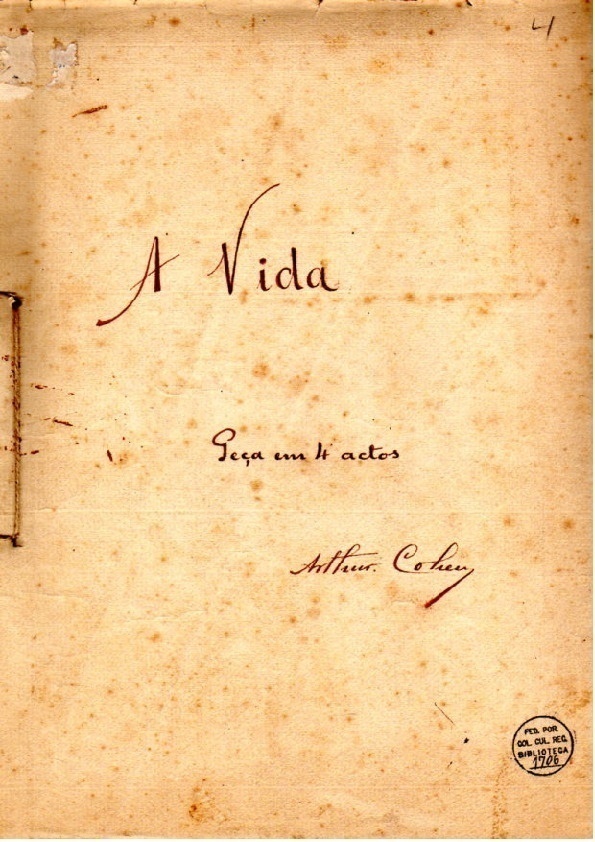 4
A Vida
Peça em 4 actos
Arthur Cohen
FED. POR.
COL. CUL. REC.
BIBLIOTECA
1706